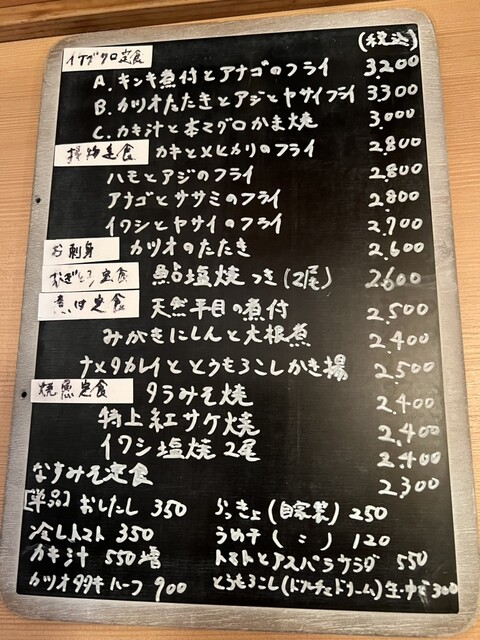 イアダクロ定食 (税込)
A. キンキ煮付とアナゴのフライ 3,200
B. カツオたたきとアジとヤサイフライ 3,300
C. カキ汁と本マグロかま焼 3,000
揚物定食 カキとメヒカリのフライ 2,800
ハモとアジのフライ 2,800
アナゴとササミのフライ 2,800
イワシとヤサイのフライ 2,700
お刺身 カツオのたたき 2,600
ねぎとろ定食 鮎塩焼つき(2尾) 2,600
煮付定食 天然平目の煮付 2,500
みがきにしんと大根煮 2,400
ナメタカレイととうもろこしかき揚 2,500
焼魚定食 タラみそ焼 2,400
特上紅サケ焼 2,400
イワシ塩焼2尾 2,400
なすみそ定食 2,300
[単品] おしたし 350 らっきょ(自家製) 250
冷しトマト 350 うめ干(〃) 120
カキ汁 550増 トマトとアスパラサラダ 550
カツオタタキハーフ 900 とうもろこし(ドルチェドリーム)生・ゆで 300